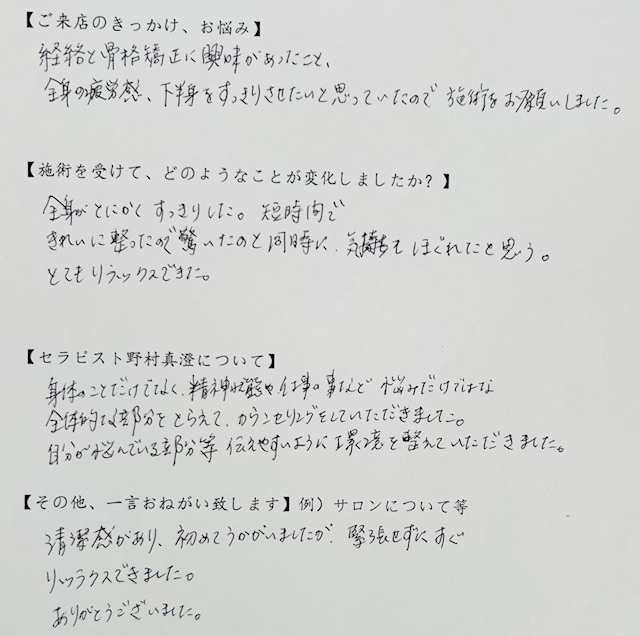 【ご来店のきっかけ、お悩み】
経絡と骨格矯正に興味があったこと、
全身の疲労感、下半身をすっきりさせたいと思っていたので 施術をお願いしました。
【施術を受けて、どのようなことが変化しましたか？】
全身がとにかくすっきりした。短時間で
きれいに整ったので驚いたのと同時に、気持ちも ほぐれたと思う。
とてもリラックスできた。
【セラピスト野村真澄について】
身体のことだけでなく、精神状態や、仕事の事など 悩みだけではな
全体的な部分をとらえて、カウンセリングをしていただきました。
自分が悩んでいる部分等 伝えやすいように環境を整えていただきました。
【その他、一言おねがい致します】例）サロンについて等
清潔感があり、初めてうかがいましたが、緊張せずにすぐ
リッラクスできました。
ありがとうございました。